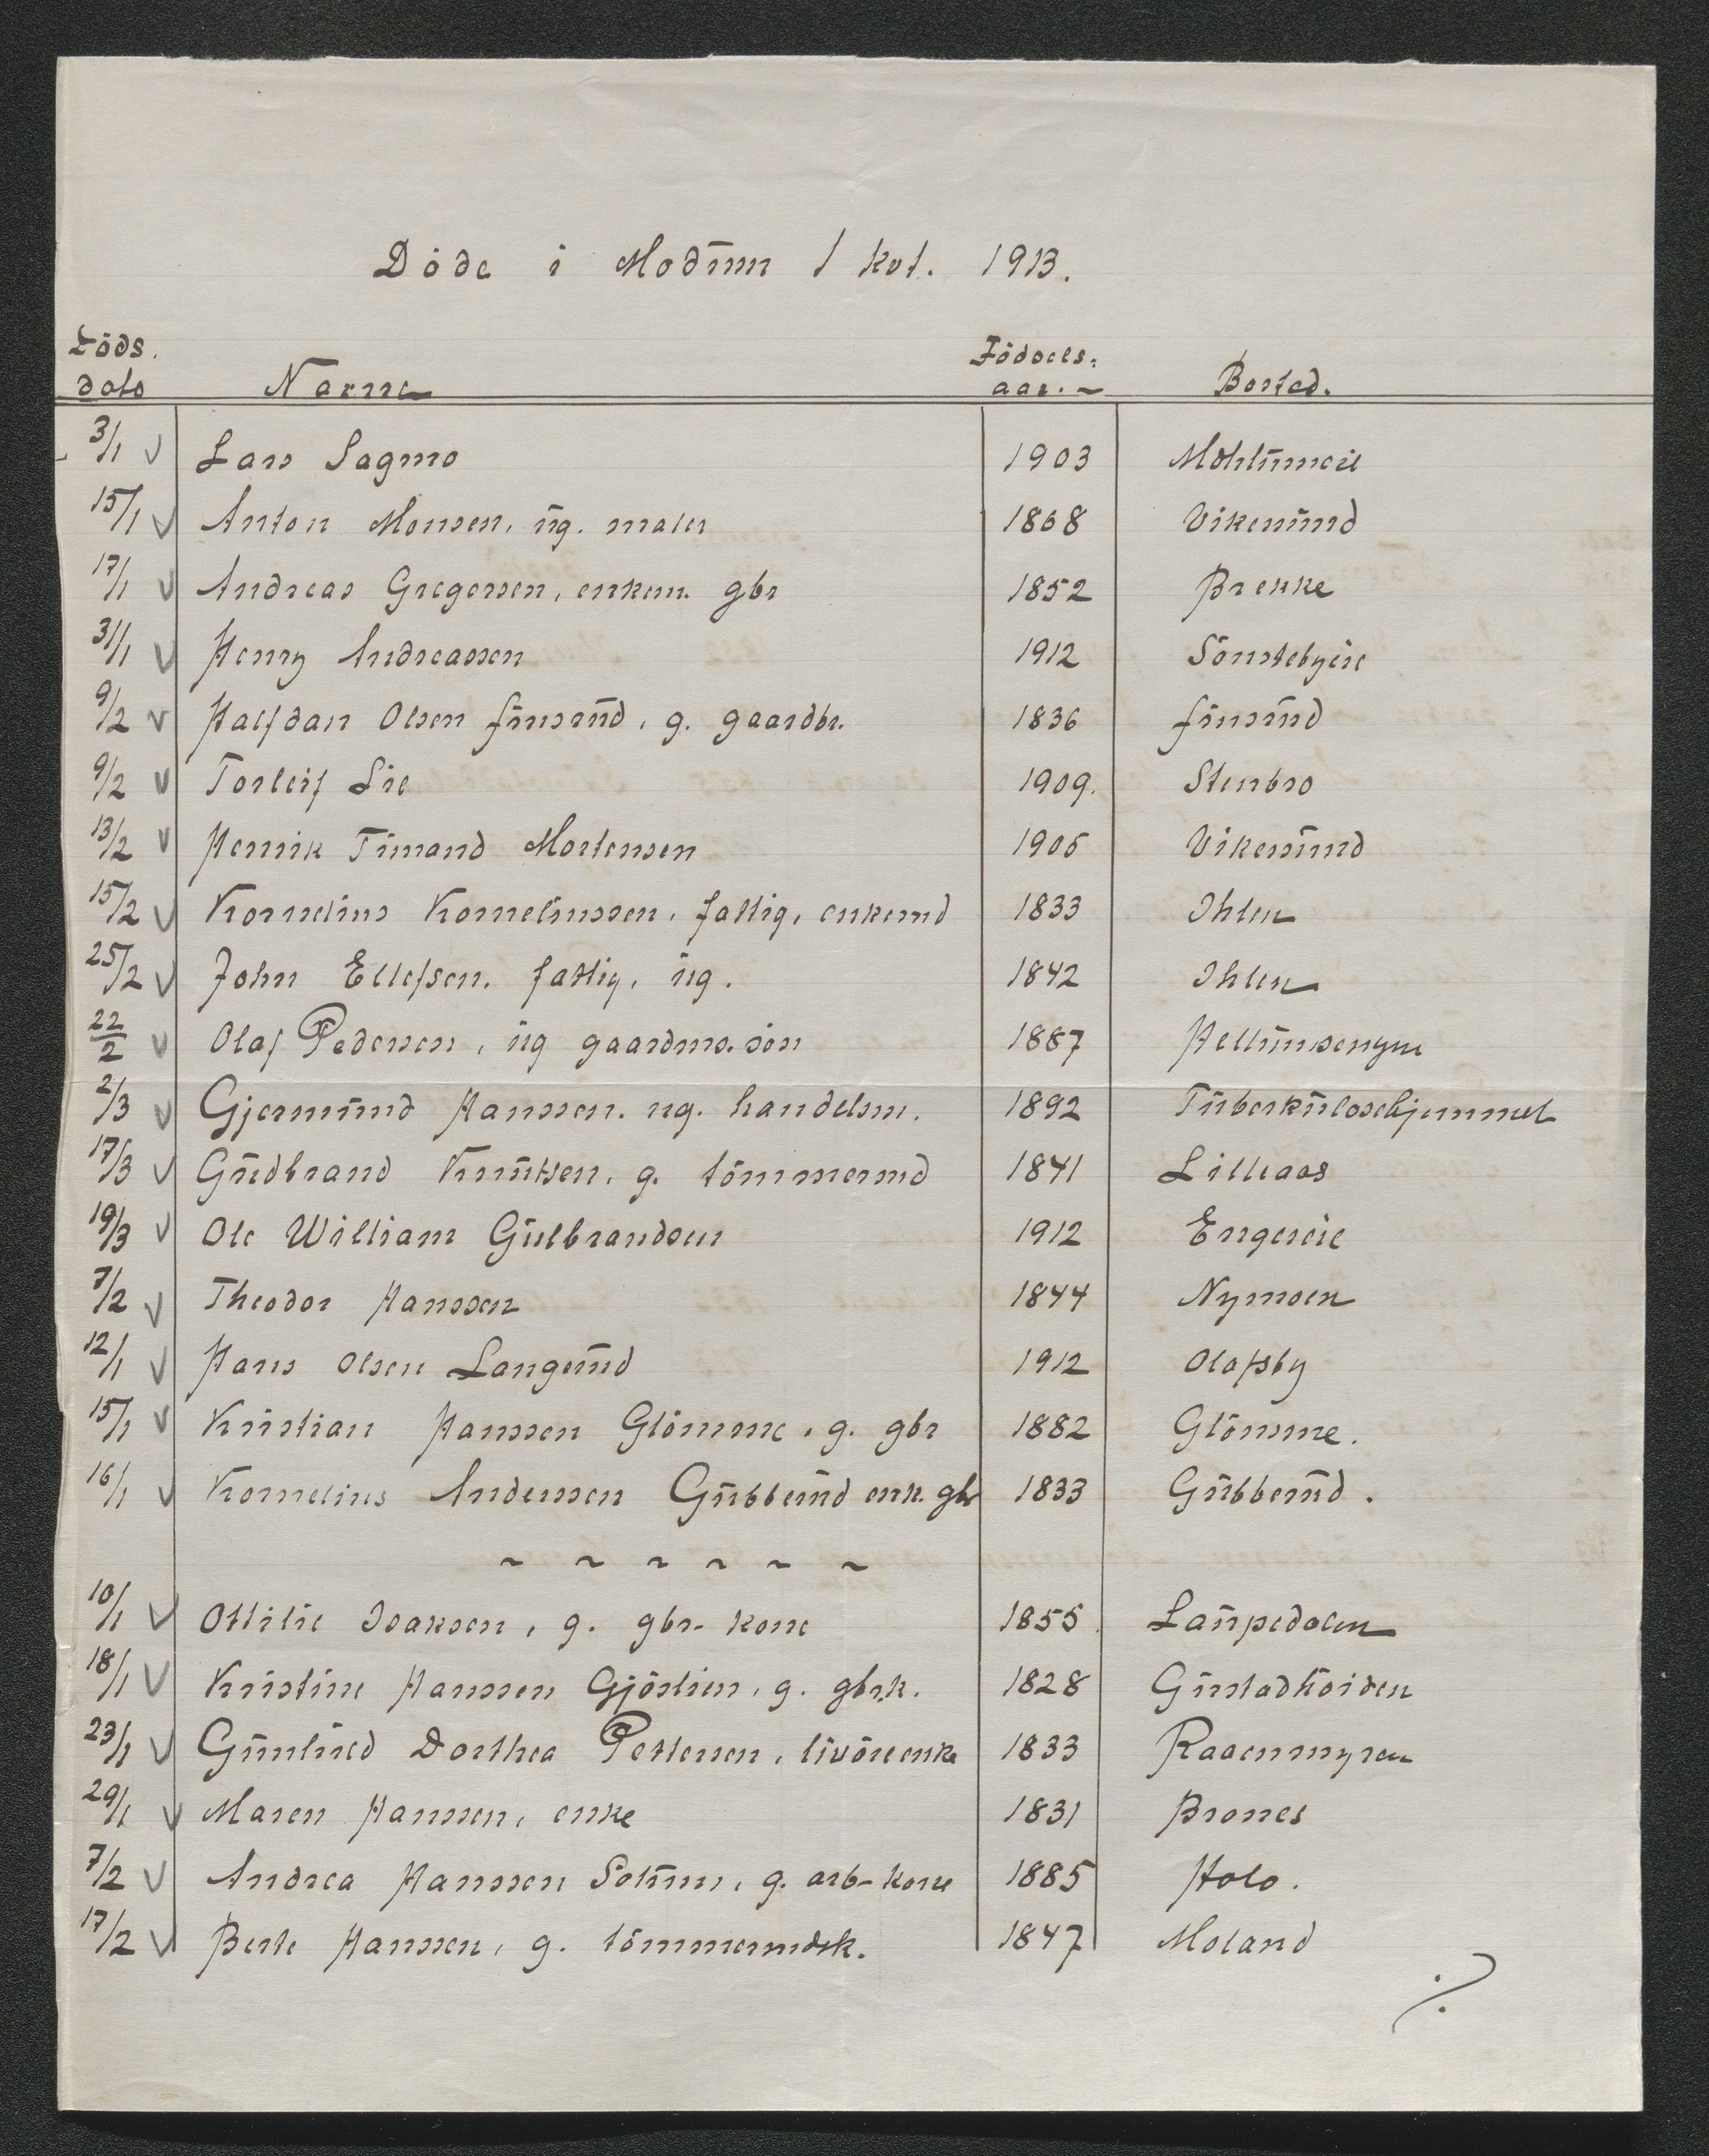 Döde i Modum 1 kvt. 1913.
Döds. dato Navne Födsels- aar. Bosted.
3/1 Lars Sagmo 1903
15/1 Anton Monsen, ug. maler 1868 Vikersund
17/1 Andreas Gregersen, enkem. gbr 1852 Brekke
31/1 Henry Andreassen 1912 Sönstebyeie
9/2 Halfdan Olsen finsrud, g. gaardbr. 1836 finsrud
9/2 Torleif Lie 1909. Stenbro
13/2 Henrik Timand Mortensen 1905 Vikersund
15/2 Kornelius Korneliussen, fattig, enkemd 1833 Ihlen
25/2 John Ellefsen, fattig, ug. 1842 Ihlen
22/2 Olaf Pedersen, ug gaardms. sön 1887 Hellumsengen
2/3 Gjermund Hanssen. ug. handelsm. 1892 Tuberkulosehjemmet
17/3 Gudbrand Knutsen, g. tömmermd 1841 Lilleaas
19/3 Ole William Gulbrandsen 1912 Engereie
7/2 Theodor Hanssen 1844 Nymoen
12/1 Hans Olsen Langerud 1912 Olafsby
15/1 Kristian Hanssen Glömme, g. gbr 1882 Glömme.
16/1 Kornelius Anderssen Gubberud enk. gbr 1833 Gubberud.
~ ~ ~ ~ ~ ~
10/1 Ottilie Isaksen, g. gbr-kone 1855. Laupedalen
18/1 Kristine Hanssen Gjöslien, g. gbrk. 1828 Gustadhöiden
23/1 Gunhild Dorthea Pettersen, livöreenke 1833 Raaenmyren
29/1 Maren Hanssen, enke 1831 Brones
7/2 Andrea Hanssen Solum, g. arb-kone 1885 Holo.
17/2 Berte Hanssen, g. tömmermdsk. 1847 Moland
./.